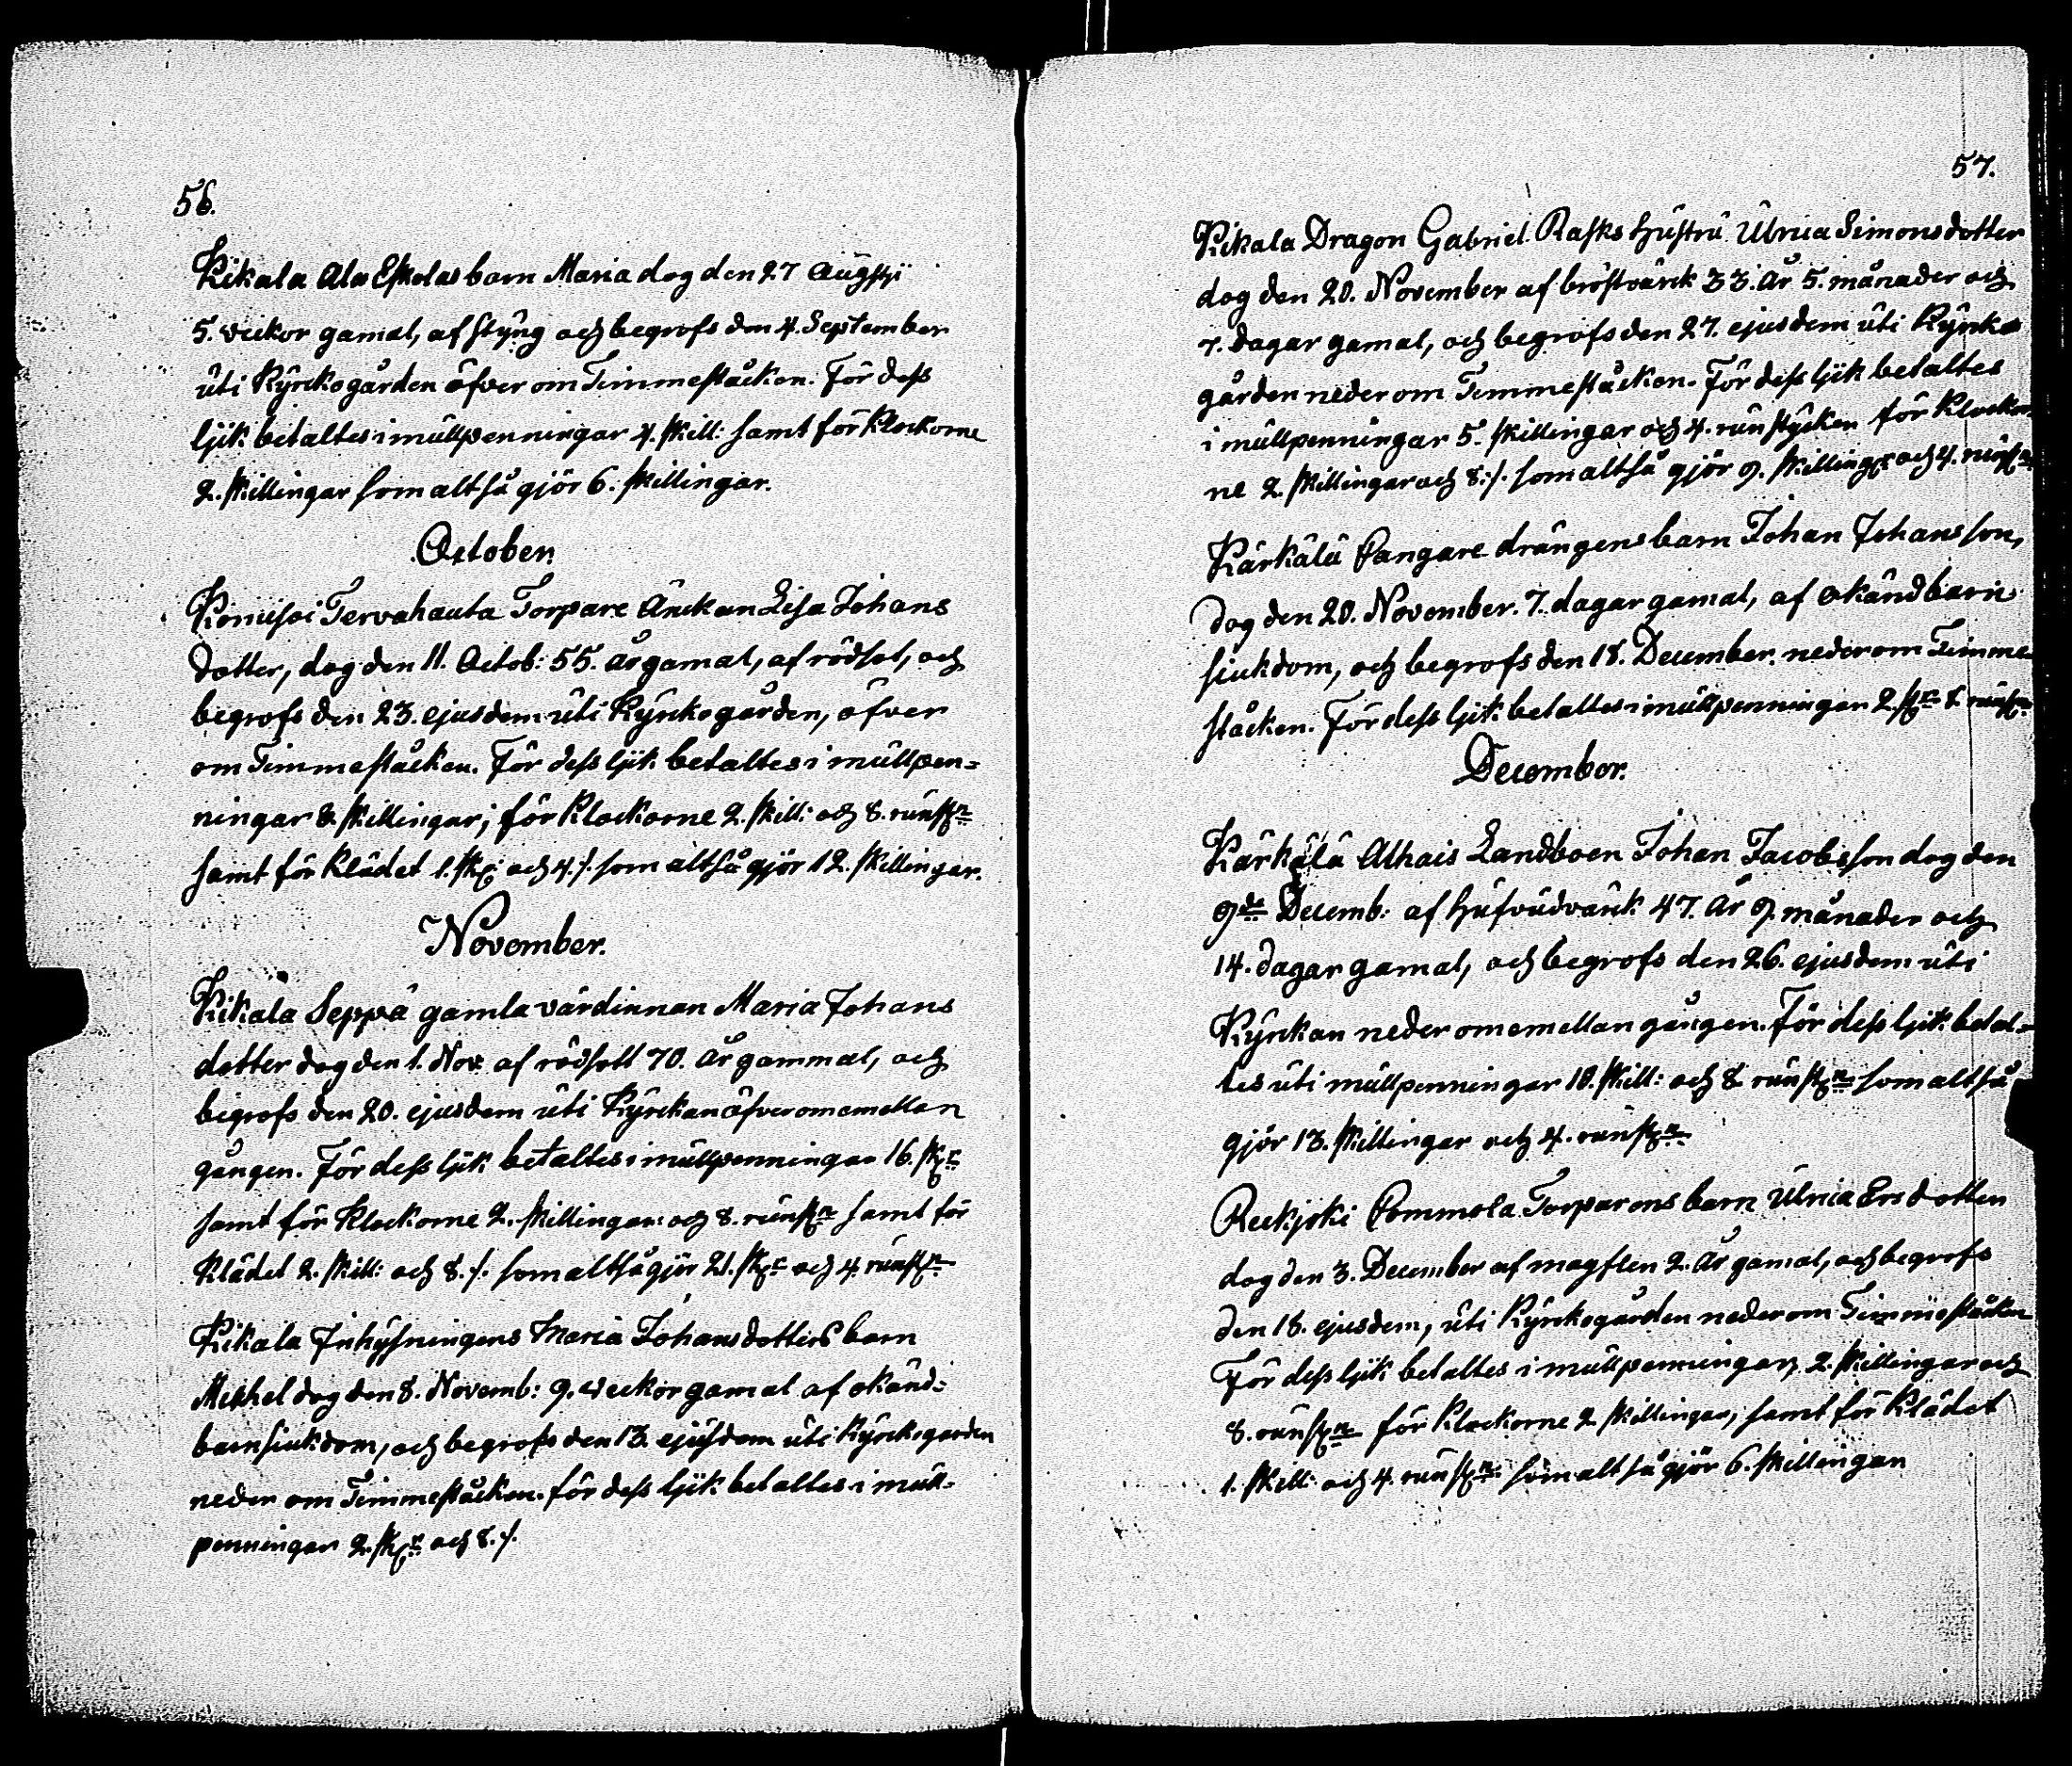 56.
Kikala Ala Eskolas barn Maria dog den 27 Augsti
5. veckor gamal, af styng och begrofs den 4. September
uti Kyrckogården öfver om Timmestäcken. För dess
lijk betaltes i mullpenningar 4. skill: samt för Klockorne
2. skillingar som altså gjör 6. skillingar.
October.
Konuisoi Tervahauta Torpare Änckan Lisa Johans
dotter, dog den 11. Octob: 55. år gamal, af rödsot, och
begrofs den 23. ejusdem uti Kyrkogården, öfver
om Timmestäcken. För dess lijk betaltes i mullpen=
ningar 8. skillingar; för Klockorne 2. skill: och 8. runstn
samt för Klädet 1. sk: och 4. /. som altså gjör 12. skillingar.
November.
Kikala Seppä gamla värdinnan Maria Johans
dotter dog den 1. Nov. af rödsott 70. år gammal, och
begrofs den 20. ejusdem uti Kyrckan öfver om emellan
gången. För dess lijk betaltes i mullpenningar 16. skr
samt för Klockorne 2. skillingar och 8. runstn samt för
Klädet 2. skill: och 8. /. som altså gjör 21. skr och 4. runstn
Kikala Inhysningens Maria Johansdotters barn
Mickel dog den 8. Novemb: 9. veckor gamal af okänd=
barnsiukdom, och begrofs den 13. ejusdem uti Kyrckogården
neder om Timmestäcken. för dess lijk betaltes i mull=
penningar 2. skr och 8. /.
57.
Kikala Dragon Gabriel Rasks hustru Ulrica Simonsdotter
dog den 20. November af bröstvärck 33. år 5. månader och
7. dagar gamal, och begrofs den 27. ejusdem uti Kyrko
gården neder om Timmestäcken. För dess lijk betaltes
i mullpenningar 5. skillingar och 4. runstycken för Klockor
ne 2. skillingar och 8. /. som altså gjör 9. skillingr och 4. runstn
Kärkälä Pangare drängens barn Johan Johansson,
dog den 20. November. 7. dagar gamal, af okänd barn
siukdom, och begrofs den 18. December. neder om Timme
stäcken. För dess lijk betaltes i mullpenningar 2. skr 8. runstn
December.
Kärkälä Alhais Landboen Johan Jacobsson dog den
9de Decemb: af hufvudvärck 47. år 9. månader och
14. dagar gamal, och begrofs den 26. ejusdem uti
Kyrckan neder om emellan gången. För dess lijk betal=
tes uti mullpenningar 10. skill: och 8 runstn som altså
gjör 13. skillingar och 4. runstn
Reckjoki Pommola Torparens barn Ulrica Ersdotter
dog den 3. December af magflen 2. år gamal, och begrofs
den 18. ejusdem, uti Kyrckogården neder om Timmestäcken
För dess lijk betaltes i mullpenningar 2. skillingar och
8. runstn för Klockorne 2 skillingar, samt för Klädet
1. skill: och 4. runstn som altså gjör 6. skillingar